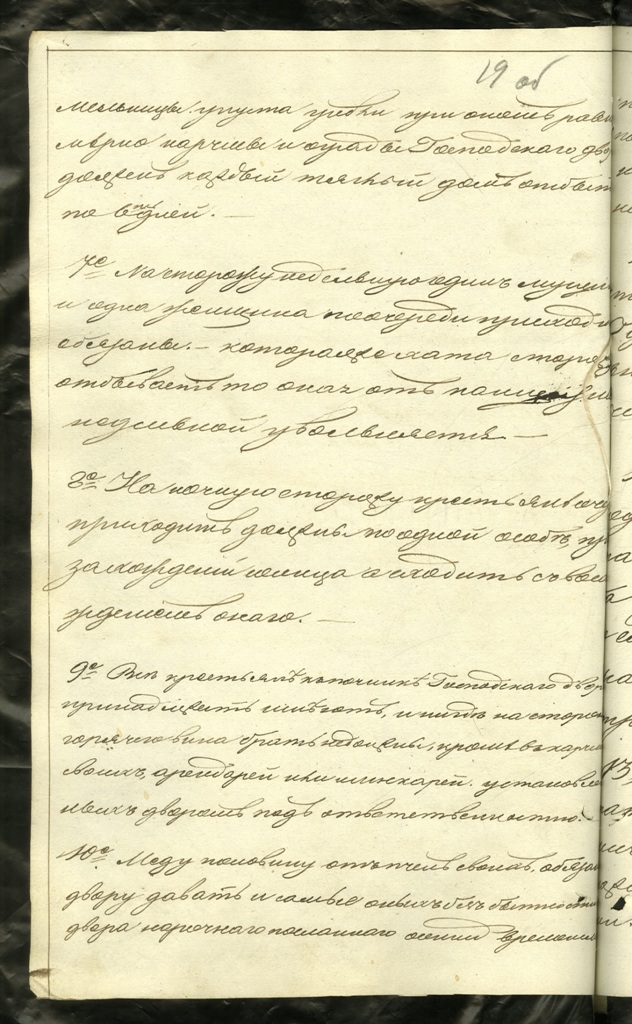 19 об
мельницы упуста гребли при оной равно
мерно корчмы и ограды Господскаго дво
долженъ каждый тяглый домъ отбыть
по 6ть дней. —
7е На сторожу недельную одинъ мущин
и одна женщина поочереди приходи
обязаны. — которая же хата сторож
отбываетъ то оная отъ панщизны
подзивной увольняется —
8е На ночную сторожу крестьяне
приходить должны по одной особѣ, пр
захожденіи солнца а сходить съ вос
жденіемъ онаго. —
9е Всѣ крестьяне къ Господскаго двор
принадлежать имѣютъ, и нигдѣ на сторо
горячего вина брать недолжны, кромѣ въ карчм
своихъ, арендарей или шинкарей установле
ныхъ дворомъ подъ ответственностію. —
10е Меду половину отъ пчелъ своихъ, обязан
двору давать и самые оныхъ бить
двора нарочного посланного осенним временем